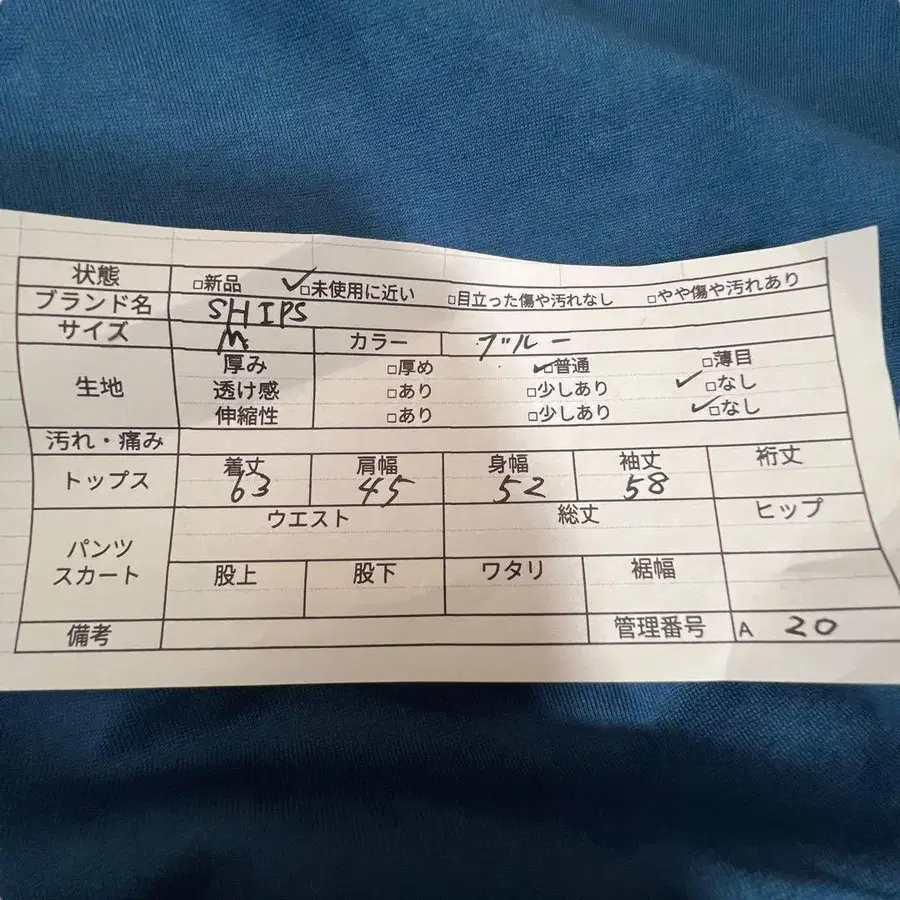 状態 □新品 ✓□未使用に近い □目立った傷や汚れなし □やや傷や汚れあり
ブランド名 SHIPS
サイズ M カラー ブルー
生地 厚み □厚め ✓□普通 □薄目
透け感 □あり □少しあり ✓□なし
伸縮性 □あり □少しあり ✓□なし
汚れ・痛み
トップス 着丈 肩幅 身幅 袖丈 裄丈
63 45 52 58
パンツ スカート ウエスト 総丈 ヒップ
股上 股下 ワタリ 裾幅
備考 管理番号 A 20